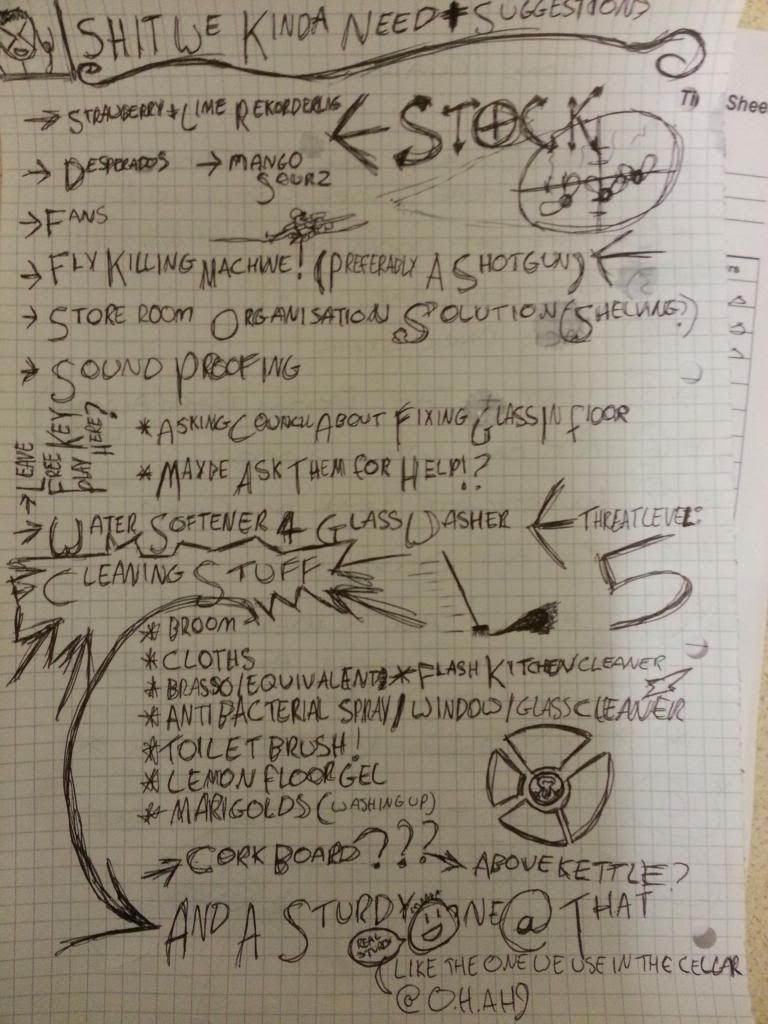 SHIT WE KINDA NEED + SUGGESTIONS
→ STRAWBERRY + LIME REKORDERLIG ← STOCK
→ DESPERADOS → MANGO SOURZ
→ FANS
→ FLY KILLING MACHINE! (PREFERABLY A SHOTGUN) ←
→ STORE ROOM ORGANISATION SOLUTION (SHELVING?)
→ SOUND PROOFING
→ LEAVE FREE KEYS PLAY HERE?
* ASKING COUNCIL ABOUT FIXING GLASS IN FLOOR
* MAYBE ASK THEM FOR HELP!?
→ WATER SOFTENER 4 GLASS WASHER ← THREAT LEVEL: 5
CLEANING STUFF
* BROOM
* CLOTHS
* BRASSO/EQUIVALENT * FLASH KITCHEN CLEANER
* ANTIBACTERIAL SPRAY/WINDOW/GLASS CLEANER
* TOILET BRUSH!
* LEMON FLOOR GEL
* MARIGOLDS (WASHING UP)
→ CORK BOARD??? → ABOVE KETTLE?
AND A STURDY ONE @ THAT
REAL STURDY
LIKE THE ONE WE USE IN THE CELLAR
@ O.H.AH)
Shee